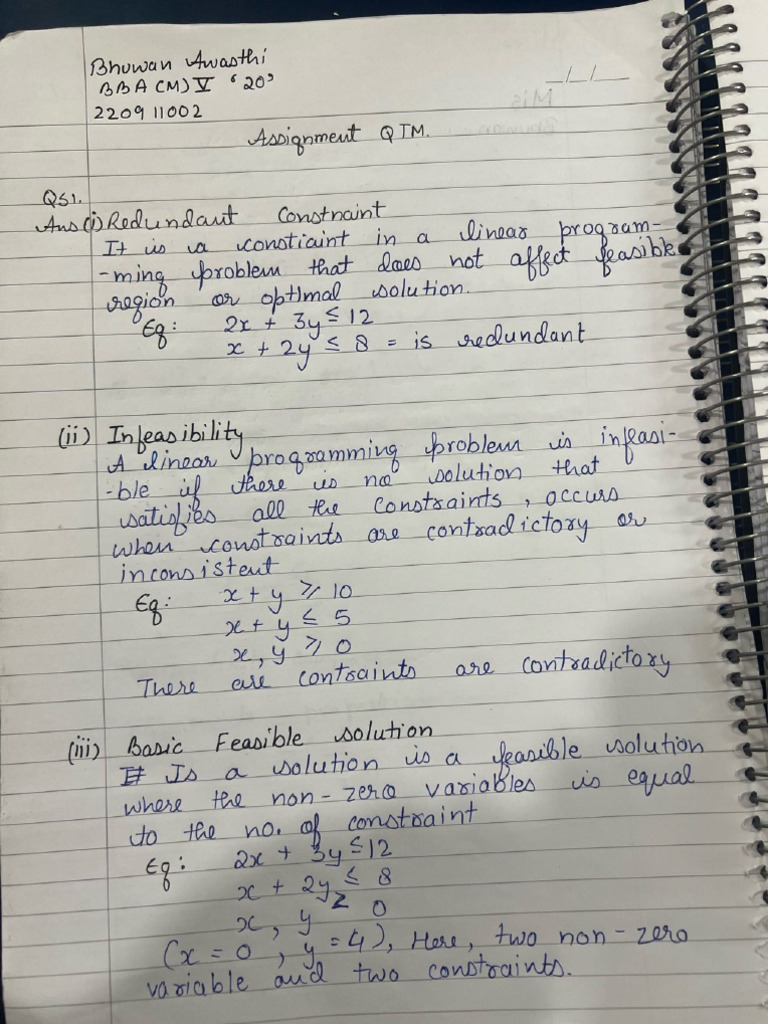 Bhuwan Awasthi
BBA (M) V '20'
220911002
_/_/_
Assignment QTM.
QS1.
Ans (i) Redundant Constraint
It is a constiaint in a linear program-
-ming problem that does not affect feasible
region or optimal solution.
Eg: 2x + 3y ≤ 12
x + 2y ≤ 8 = is redundant
(ii) Infeasibility
A linear programming problem is infeasi-
-ble if there is no solution that
satisfies all the constraints, occurs
when constraints are contradictory or
inconsistent
Eg: x + y ≥ 10
x + y ≤ 5
x, y ≥ 0
There are contraints are contradictory
(iii) Basic Feasible solution
Is a solution is a feasible solution
where the non-zero variables is equal
to the no. of constraint
Eg: 2x + 3y ≤ 12
x + 2y ≤ 8
x, y ≥ 0
(x = 0, y = 4), Here, two non-zero
variable and two constraints.